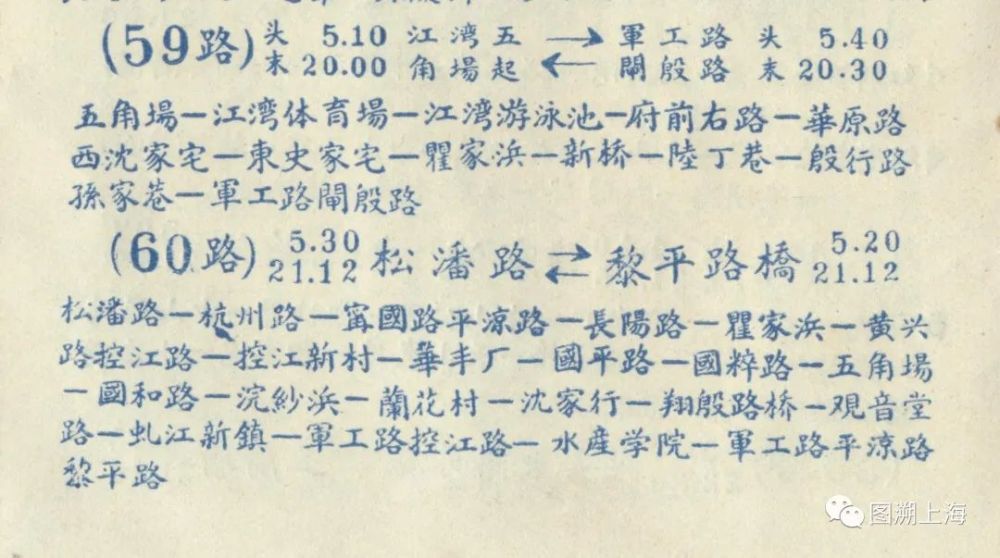 (59路) 头 5.10 江湾五 → 軍工路 头 5.40
末 20.00 角場起 ← 閘殷路 末 20.30
五角場—江湾体育場—江湾游泳池—府前右路—華原路
西沈家宅—東史家宅—瞿家浜—新桥—陸丁巷—殷行路
孫家巷—軍工路閘殷路
(60路) 5.30 松潘路 ⇄ 黎平路橋 5.20
21.12 21.12
松潘路—杭州路—甯國路平涼路—長陽路—瞿家浜—黄兴
路控江路—控江新村—華丰厂—國平路—國粹路—五角場
—國和路—浣紗浜—蘭花村—沈家行—翔殷路桥—观音堂
路—虬江新鎮—軍工路控江路—水産学院—軍工路平涼路
黎平路
图溯上海